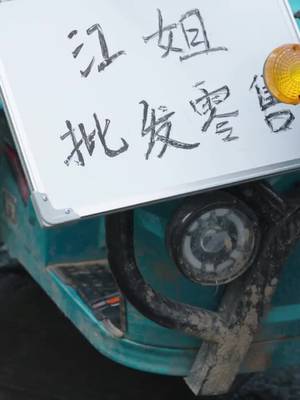 江姐
批发零售